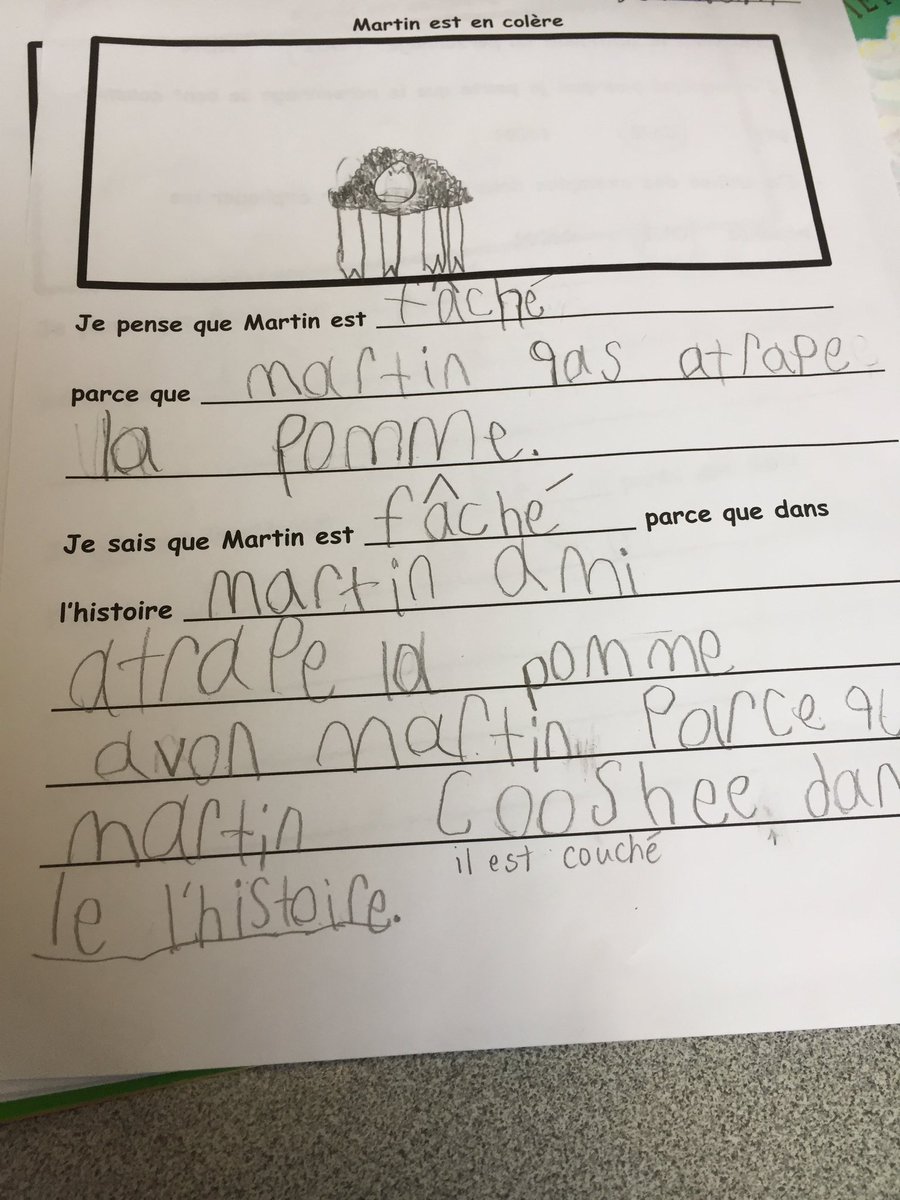 Martin est en colère
Je pense que Martin est fâché
parce que martin qas atrape
la pomme.
Je sais que Martin est fâché parce que dans
l'histoire martin ami
atrape la pomme
avon martin Parce qu
martin Cooshee dan
il est couché
le l'histoire.